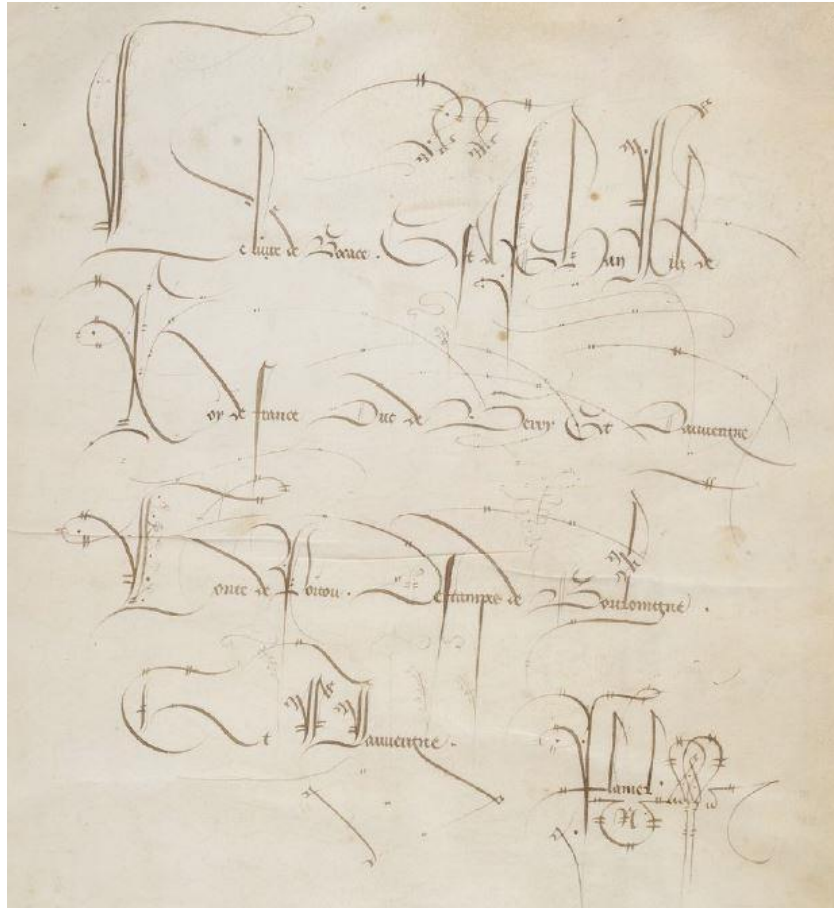 Ce liure de Boece. Est a Jehan filz de
Roy de france Duc de Berry Et Dauuergne
Conte de Poitou. Destampes de Bouloingne.
Et Dauuergne. Flamel.